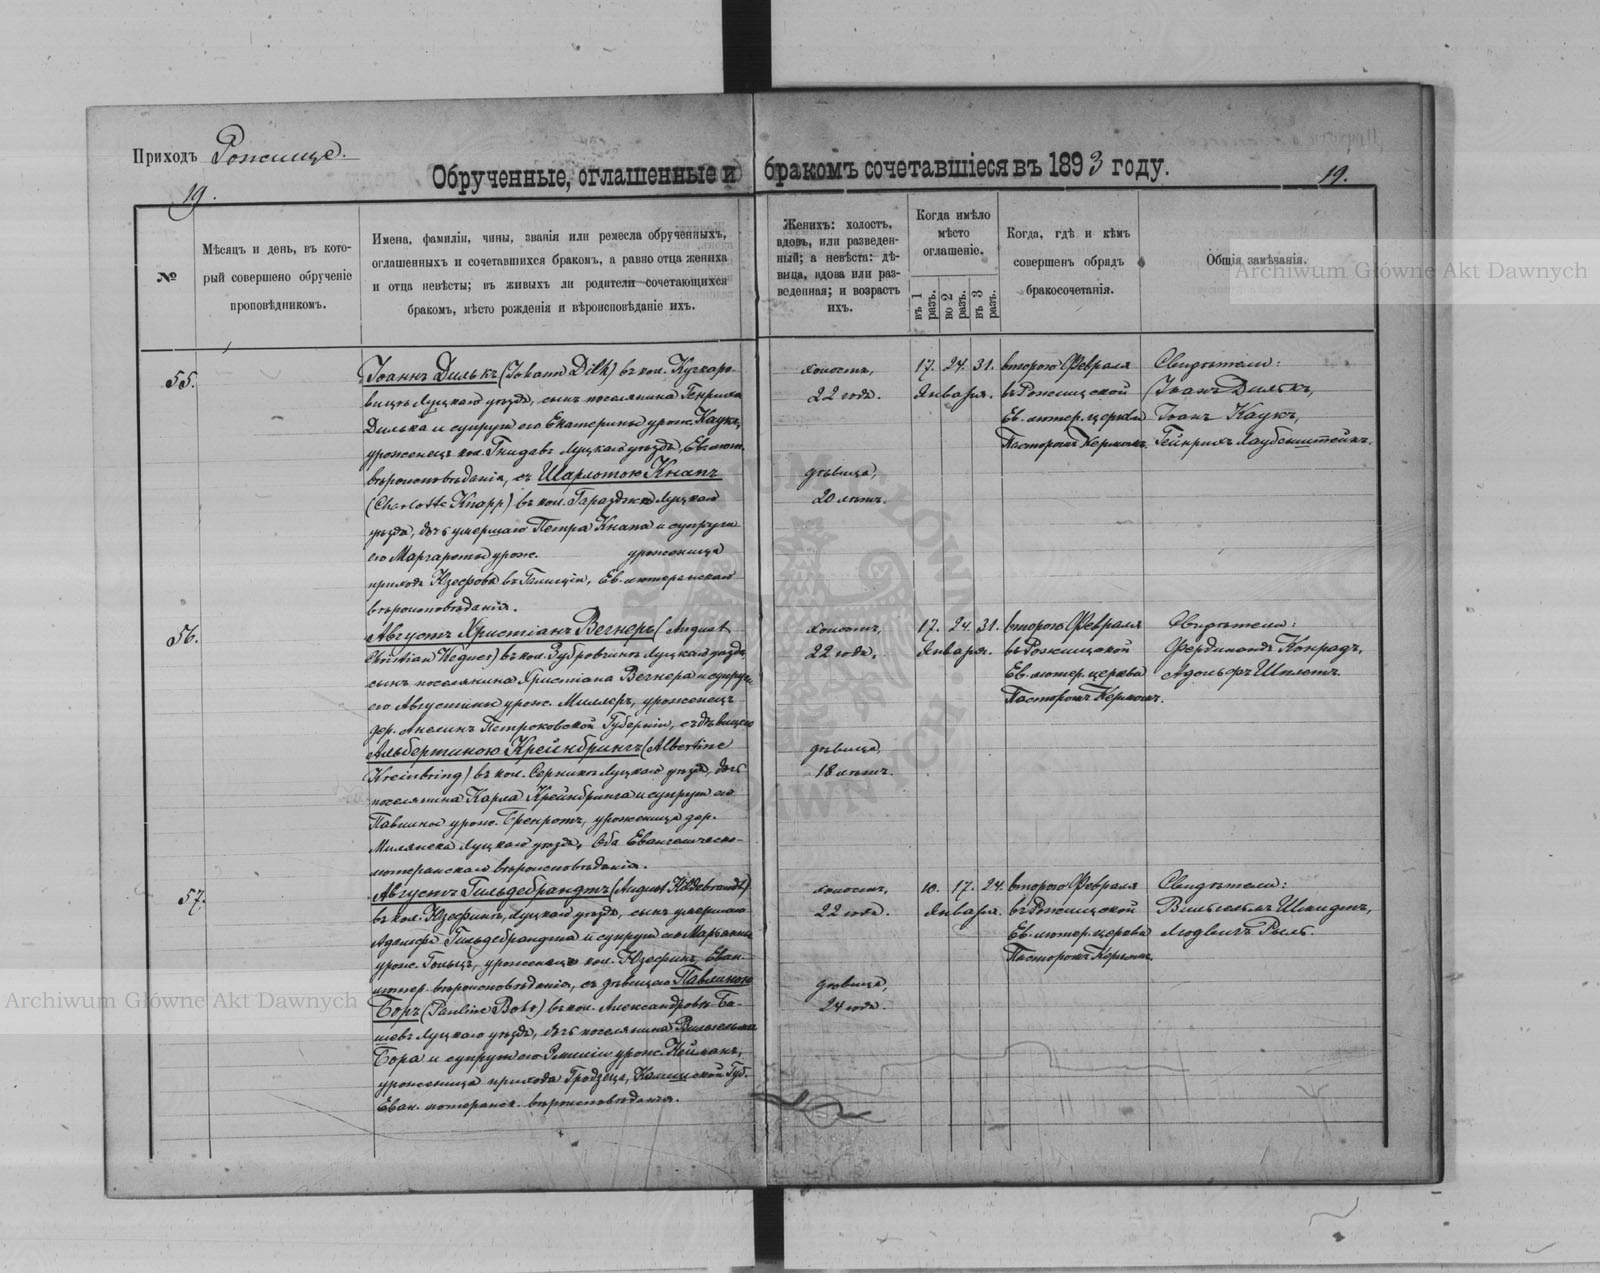 Приходъ Рожище.
19.
Обрученные, оглашенные и бракомъ сочетавшіеся въ 1893 году.
19.
№
Мѣсяцъ и день, въ кото-
рый совершено обрученіе
проповѣдникомъ.
Имена, фамиліи, чины, званія или ремесла обрученныхъ,
оглашенныхъ и сочетавшихся бракомъ, а равно отца жениха
и отца невѣсты; въ живыхъ ли родители сочетающихся
бракомъ, мѣсто рожденія и вѣроисповѣданіе ихъ.
Женихъ: холостъ,
вдовъ, или разведен-
ный; а невѣста: дѣ-
вица, вдова или раз-
веденная; и возрастъ
ихъ.
Когда имѣло
мѣсто
оглашеніе.
въ 1
разъ.
во 2
разъ.
въ 3
разъ.
Когда, гдѣ и кѣмъ
совершенъ обрядъ
бракосочетанія.
Общія замѣчанія.
Archiwum Główne Akt Dawnych
55.
Іоаннъ Дилькъ (Johann Dilk) въ кол. Кучкаро-
вицѣ Луцкаго уѣзда, сынъ поселянина Генриха
Дилька и супруги его Екатерины урож. Каукъ,
уроженецъ кол. Гнидавъ Луцкаго уѣзда, Ев. лют.
вѣроисповѣданія, съ Шарлотою Кнапъ
(Charlotte Knapp) въ кол. Гараздже Луцкаго
уѣзда, дочь умершаго Петра Кнапа и супруги
его Маргареты урож. уроженица
прихода Юзефовъ въ Галиціи, Ев. лютеранскаго
вѣроисповѣданія.
холостъ,
22 года.
дѣвица,
20 лѣтъ.
17. 24. 31.
Января.
второго Февраля
въ Рожищской
Ев. лютер. церкви
Пасторомъ Керномъ.
Свидѣтели:
Іоанъ Дилькъ,
Іоанъ Каукъ,
Гейнрихъ Лаубенштейнъ.
56.
Августъ Христіанъ Вегнеръ (August
Christian Wegner) въ кол. Дубровкинъ Луцкаго уѣзда,
сынъ поселянина Христіана Вегнера и супруги
его Августины урож. Миллеръ, уроженецъ
дер. Анелинъ Петроковской Губерніи, съ дѣвицею
Альбертиною Крейнбрингъ (Albertine
Kreinbring) въ кол. Серники Луцкаго уѣзда, дочь
поселянина Карла Крейнбринга и супруги его
Павлины урож. Бренротъ, уроженица дер.
Милянска Луцкаго уѣзда, Оба Евангелическо-
лютеранскаго вѣроисповѣданія.
холостъ,
22 года.
дѣвица,
18 лѣтъ.
17. 24. 31.
Января.
второго Февраля
въ Рожищской
Ев. лютер. церкви
Пасторомъ Керномъ.
Свидѣтели:
Фердинандъ Конрадъ,
Адольфъ Шплетъ.
57.
Августъ Гильдебрандтъ (August Hildebrandt)
въ кол. Юзефинъ, Луцкаго уѣзда, сынъ умершаго
Адольфа Гильдебрандта и супруги его Маріанны
урож. Гольцъ, уроженецъ кол. Юзефинъ, Еван.
лютер. вѣроисповѣданія, съ дѣвицею Павлиною
Боръ (Pauline Bohr) въ кол. Александровкѣ Ба-
шевъ Луцкаго уѣзда, дочь поселянина Вильгельма
Бора и супруги его Эмиліи урож. Нейманъ,
уроженица прихода Гродзецъ, Калишской Губ.
Еван. лютеранск. вѣроисповѣданія.
холостъ,
22 года.
дѣвица,
24 года.
10. 17. 24.
Января.
второго Февраля
въ Рожищской
Ев. лютер. церкви
Пасторомъ Керномъ.
Свидѣтели:
Вильгельмъ Шмидтъ,
Людвигъ Рыль.
Archiwum Główne Akt Dawnych